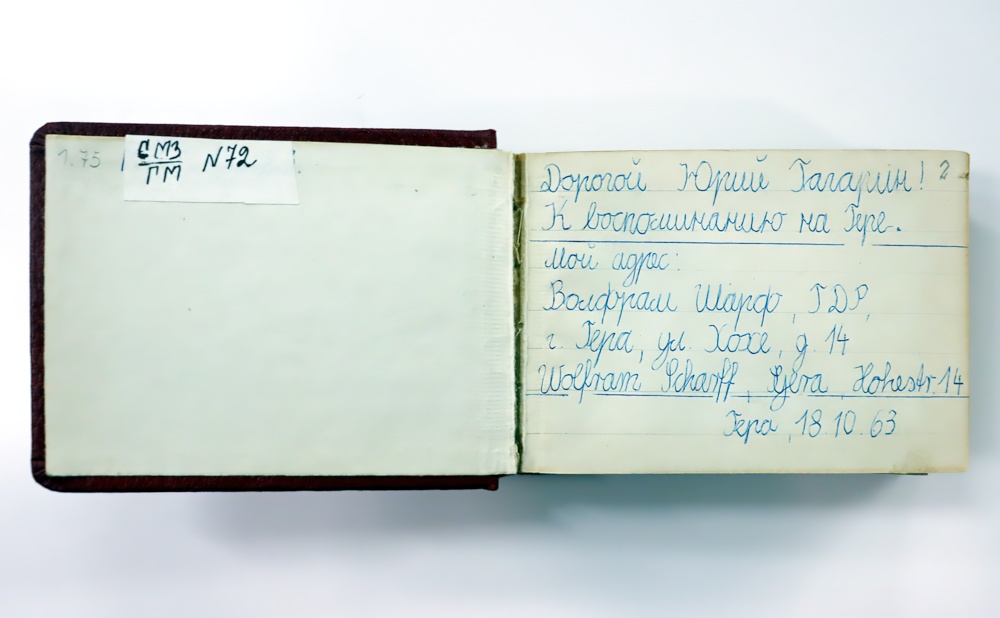 1.75
СМЗ
ПМ
N72
2
Дорогой Юрий Гагарин!
К воспоминанию на Гере.
Мой адрес:
Волфрам Шарф, ГДР,
г. Гера, ул. Хохе, д. 14
Wolfram Scharff, Gera, Hohestr. 14
Гера, 18.10.63